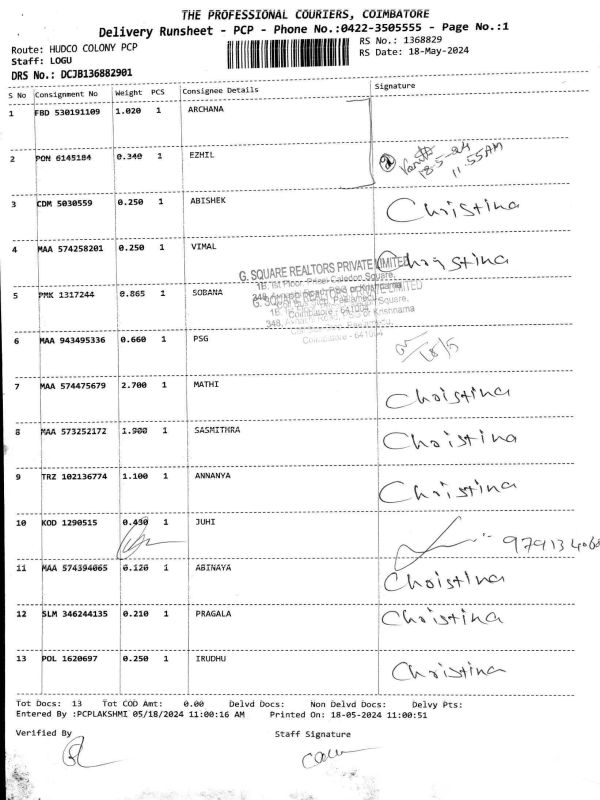 THE PROFESSIONAL COURIERS, COIMBATORE
Delivery Runsheet - PCP - Phone No.:0422-3505555 - Page No.:1
Route: HUDCO COLONY PCP RS No.: 1368829
Staff: LOGU RS Date: 18-May-2024
DRS No.: DCJB136882901
S No Consignment No Weight PCS Consignee Details Signature
1 FBD 530191109 1.020 1 ARCHANA
2 PON 6145184 0.340 1 EZHIL
18-5-24
11.55AM
3 CDM 5030559 0.250 1 ABISHEK Christina
4 MAA 574258201 0.250 1 VIMAL Christina
G. SQUARE REALTORS PRIVATE LIMITED
5 PMK 1317244 0.865 1 SOBANA
Coimbatore - 641004
6 MAA 943495336 0.660 1 PSG 18/5
7 MAA 574475679 2.700 1 MATHI Christina
8 MAA 573252172 1.900 1 SASMITHRA Christina
9 TRZ 102136774 1.100 1 ANNANYA Christina
10 KOD 1290515 0.430 1 JUHI
11 MAA 574394065 0.120 1 ABINAYA Christina
12 SLM 346244135 0.210 1 PRAGALA Christina
13 POL 1620697 0.250 1 IRUDHU Christina
Tot Docs: 13 Tot COD Amt: 0.00 Delvd Docs: Non Delvd Docs: Delvy Pts:
Entered By :PCPLAKSHMI 05/18/2024 11:00:16 AM Printed On: 18-05-2024 11:00:51
Verified By Staff Signature